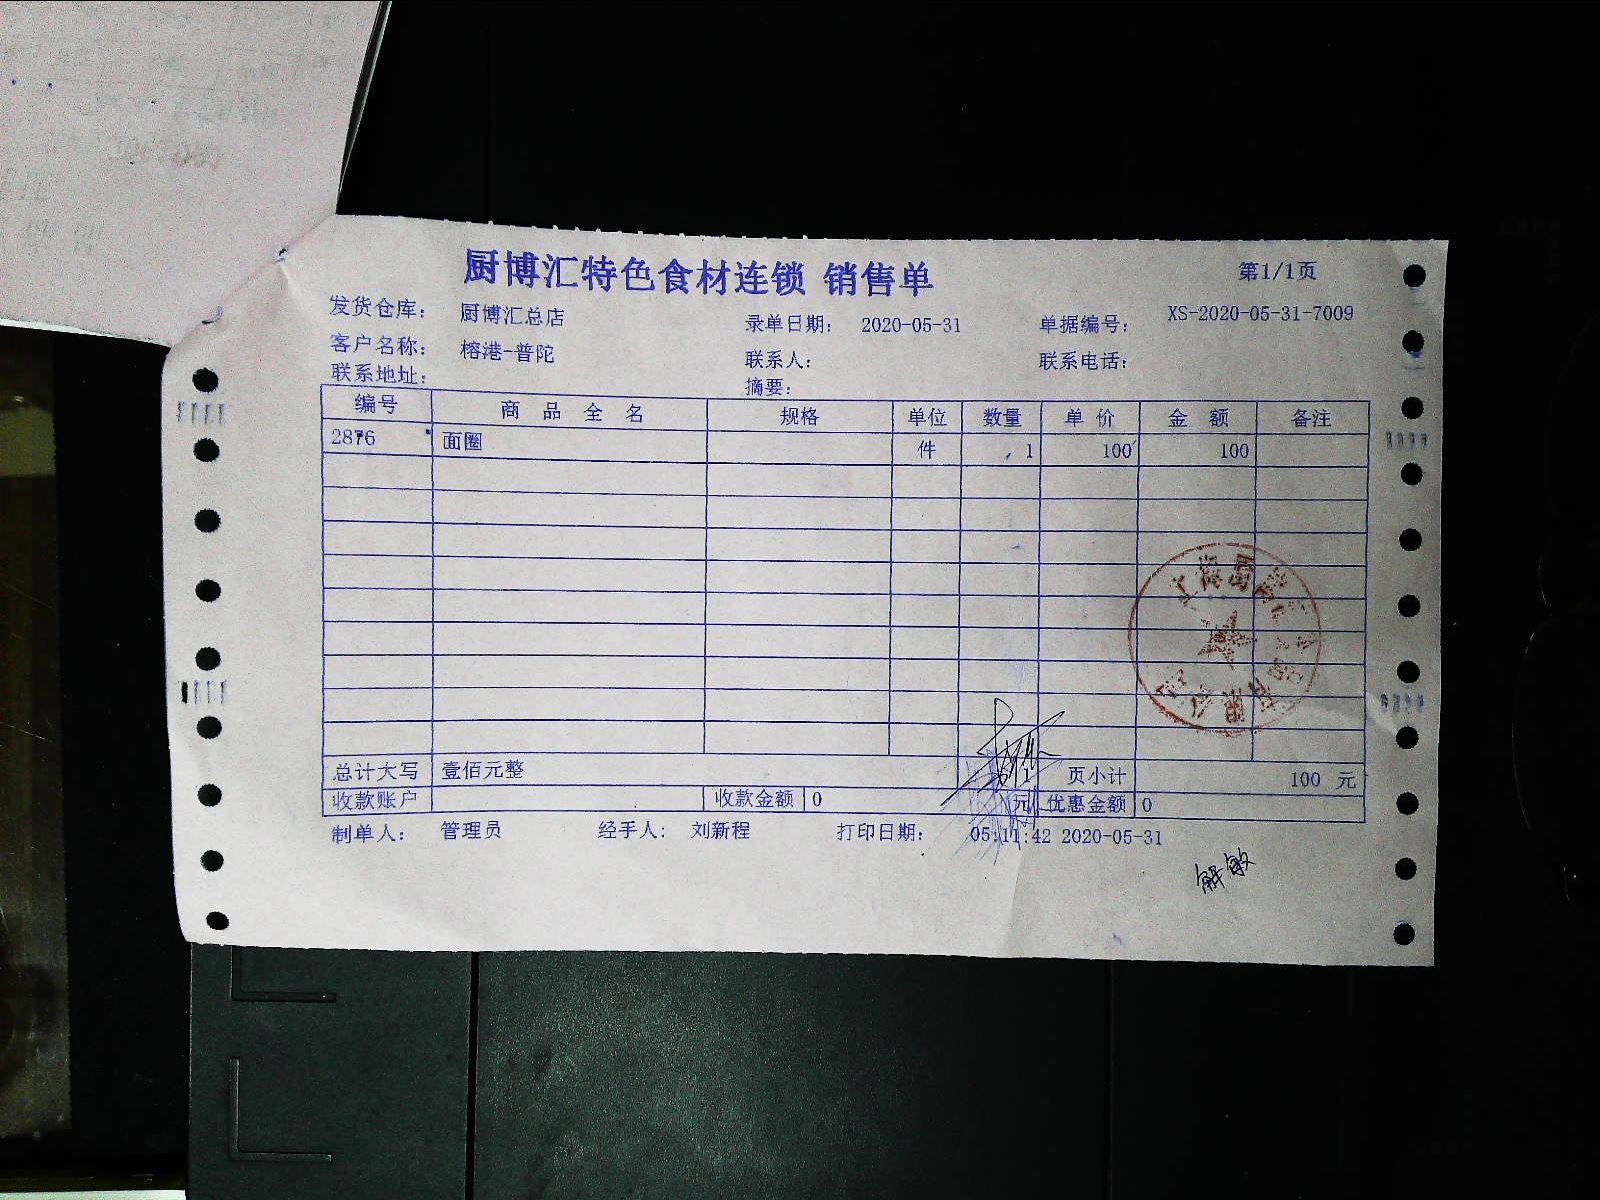 厨博汇特色食材连锁 销售单 第1/1页
发货仓库： 厨博汇总店 录单日期： 2020-05-31 单据编号： XS-2020-05-31-7009
客户名称： 榕港-普陀 联系人： 联系电话：
联系地址： 摘要：
编号 商品全名 规格 单位 数量 单价 金额 备注
2876 面圈 件 1 100 100
总计大写 壹佰元整 1 页小计 100 元
收款账户 收款金额 0 元 优惠金额 0
制单人： 管理员 经手人： 刘新程 打印日期： 05:11:42 2020-05-31
解敏